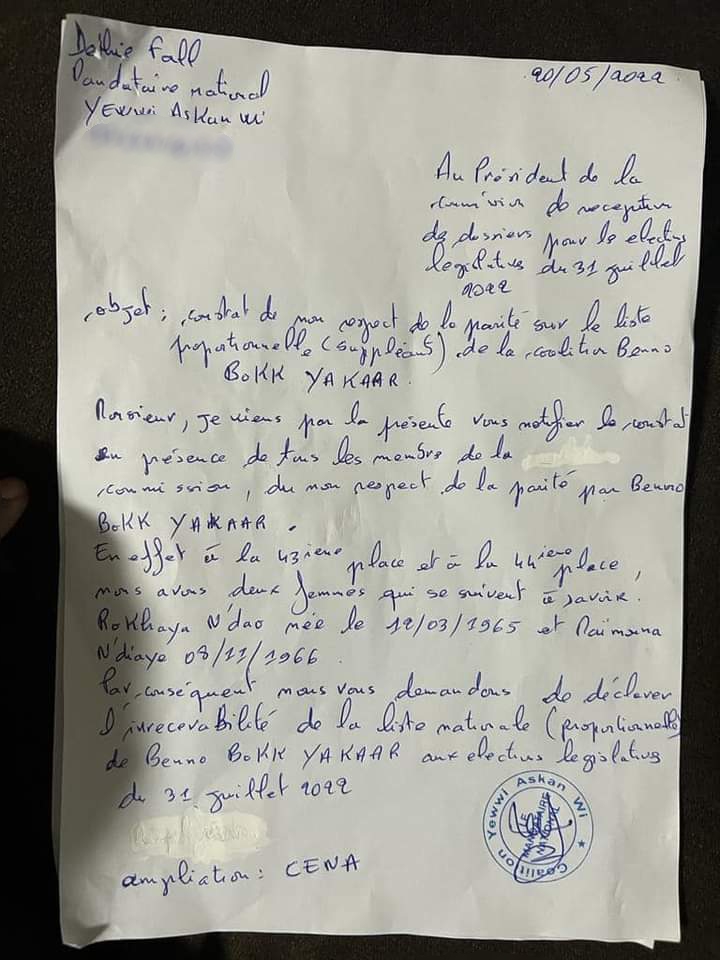 Dethie Fall
Mandataire national
YEWWI ASKAN Wi
20/05/2022
Au Président de la
commission de reception
de dossiers pour les elections
legislatives du 31 juillet
2022
objet : constat de non respect de la parité sur la liste
proportionnelle (suppléant) de la coalition Benno
BOKK YAKAAR.
Monsieur, je viens par la présente vous notifier le constat
en présence de tous les membre de la
commission, du non respect de la parité par Benno
BOKK YAKAAR.
En effet à la 43ieme place et à la 44ieme place,
nous avons deux femmes qui se suivent à savoir.
Rokhaya N'dao née le 12/03/1965 et Maïmouna
N'diaye 08/11/1966.
Par conséquent nous vous demandons de déclarer
l'irrecevabilité de la liste nationale (proportionnelle)
de Benno BOKK YAKAAR aux elections legislatives
du 31 juillet 2022
Coalition Yewwi Askan Wi
LE
MANDATAIRE
NATIONAL
ampliation : CENA